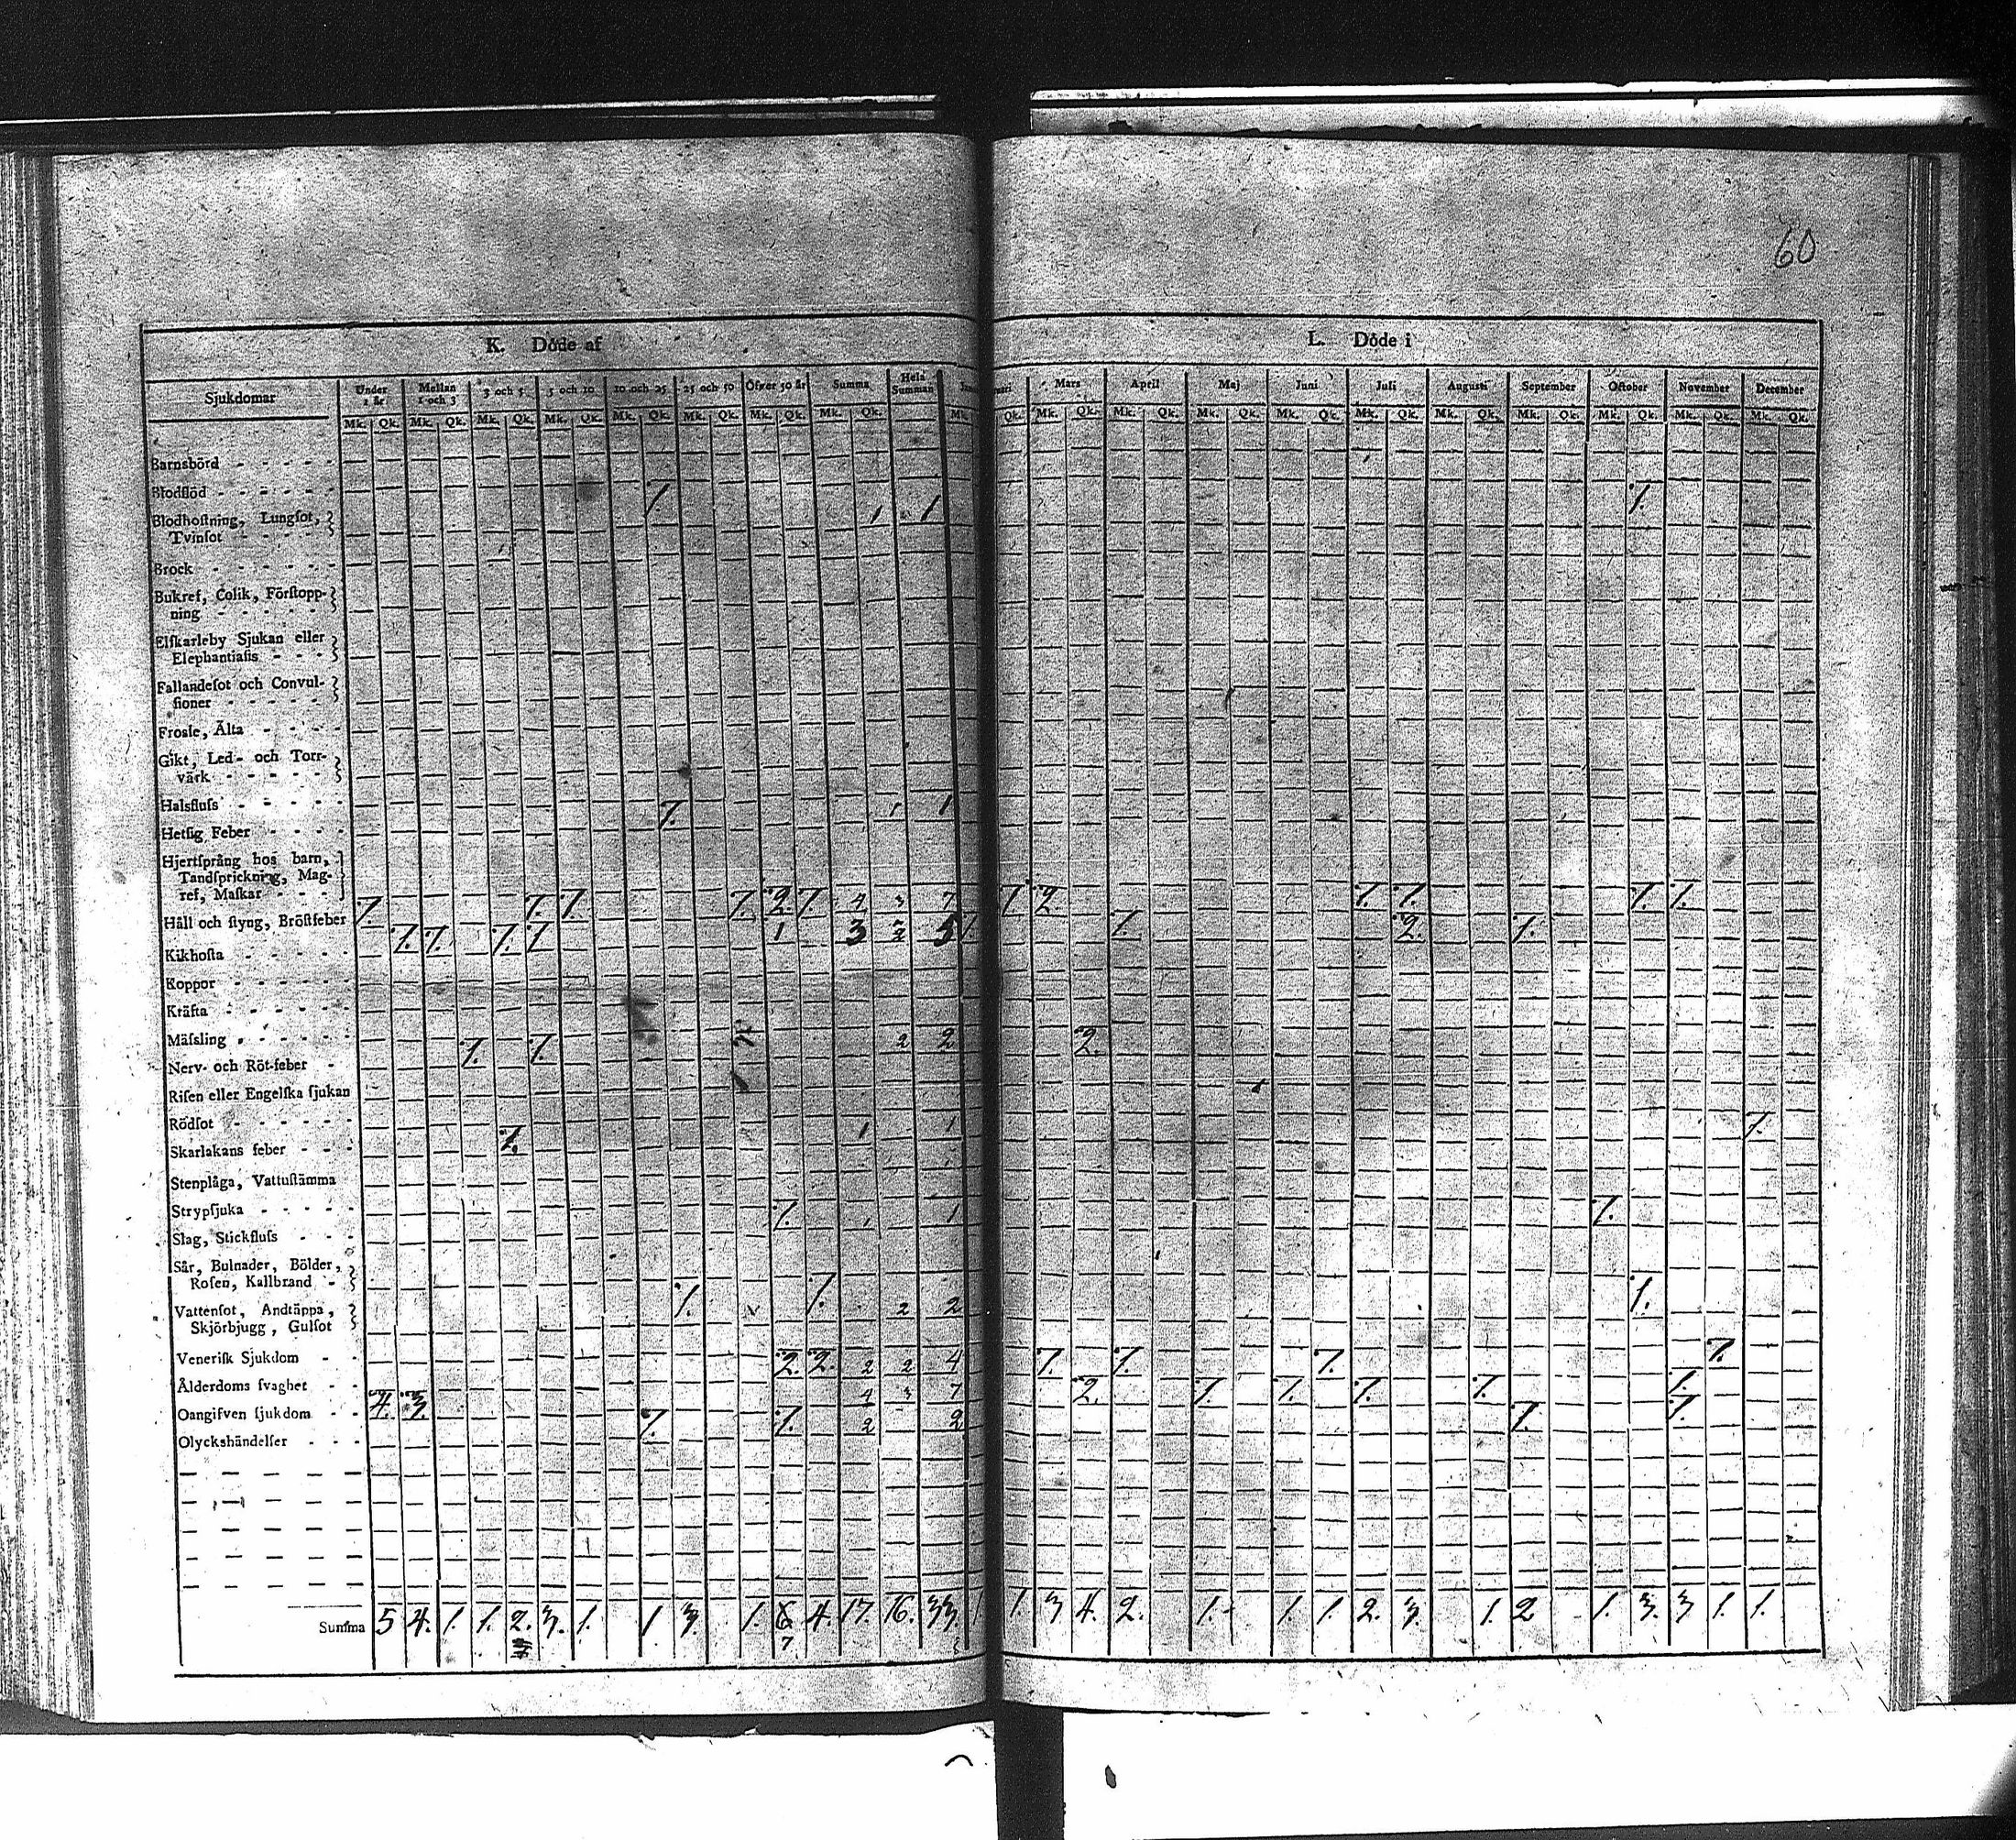 60
K. Döde af L. Döde i
Sjukdomar Under 1 år Mellan 1 och 3 3 och 5 5 och 10 10 och 25 25 och 50 Öfver 50 år Summa Hela Summan Mars April Maj Juni Juli Augusti September October November December
Mk. Qk. Mk. Qk. Mk. Qk. Mk. Qk. Mk. Qk. Mk. Qk. Mk. Qk. Mk. Qk. Mk. Qk. Mk. Qk. Mk. Qk. Mk. Qk. Mk. Qk. Mk. Qk. Mk. Qk. Mk. Qk. Mk. Qk. Mk. Qk. Mk. Qk.
Barnsbörd
Blodflöd
Blodhoſtning, Lungſot, 1. 1 1 1.
Tvinſot
Brock
Bukref, Colik, Förſtopp-
ning
Elfkarleby Sjukan eller
Elephantiaſis
Fallandeſot och Convul-
ſioner
Frosſe, Älta
Gikt, Led- och Torr-
värk
Halsfluſs
Hetſig Feber 1. 1 1
Hjertſprång hos barn,
Tandſprickning, Mag-
ref, Maſkar
Håll och ſtyng, Bröſtfeber 1. 1. 1. 1. 2. 1. 4 3 7 1. 2. 1. 1. 1. 1.
Kikhoſta 1. 1. 1. 1. 1 3 2 5 1 1. 2. 1.
Koppor
Kräfta
Mäſsling
Nerv- och Röt-feber 1. 1. 2 2 2.
Riſen eller Engelſka ſjukan
Rödſot
Skarlakans feber 1. 1 1 1.
Stenplåga, Vattuſtämma
Strypſjuka
Slag, Stickfluſs 1. 1 1 1.
Sår, Bulnader, Bölder,
Roſen, Kallbrand
Vattenſot, Andtäppa, 1. 1. 2 2 1.
Skjörbjugg, Gulſot
Veneriſk Sjukdom
Ålderdoms ſvaghet 2. 2. 2 2 4 1. 1. 1. 1.
Oangifven ſjukdom 4. 3. 4 3 7 2. 1. 1. 1. 1. 1.
Olyckshändelſer 1. 1. 2 2 1. 1.
Summa 5 4. 1. 1. 2. 3. 1. 1. 3. 1. 6 4. 17. 16. 33. 1 1. 3 4. 2. 1. 1. 1. 2. 3. 1. 2 1. 3. 3 1. 1.
7